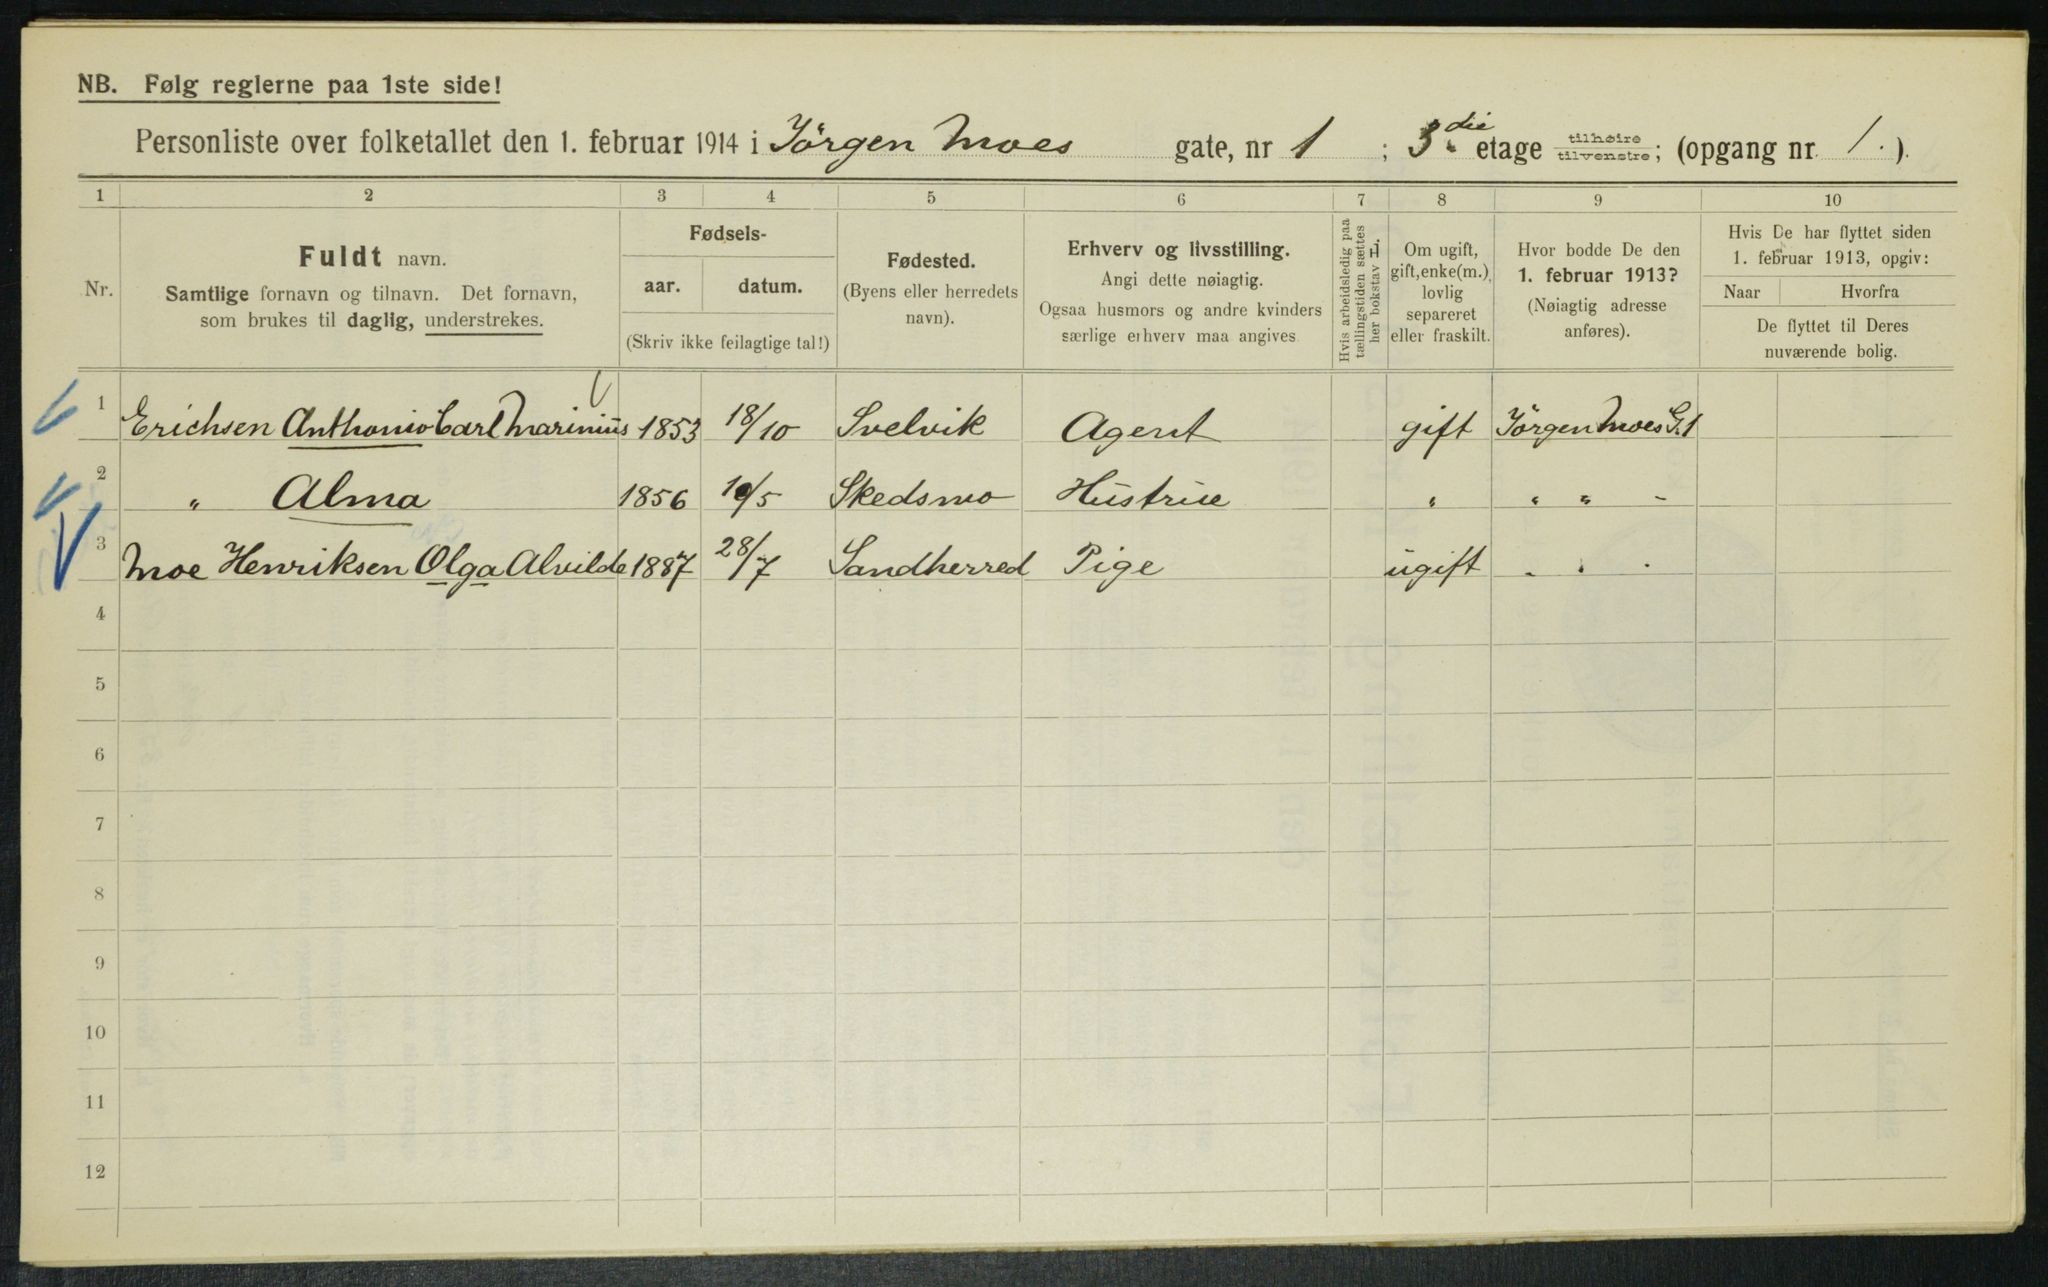 NB. Følg reglerne paa 1ste side!
Personliste over folketallet den 1. februar 1914 i Jörgen Moes gate, nr 1 ; 3die etage tilhøire tilvenstre; (opgang nr. 1. ).
1 2 3 4 5 6 7 8 9 10
Nr.
Fuldt navn.
Samtlige fornavn og tilnavn. Det fornavn,
som brukes til daglig, understrekes.
Fødsels-
aar. datum.
(Skriv ikke feilagtige tal!)
Fødested.
(Byens eller herredets
navn).
Erhverv og livsstilling.
Angi dette nøiagtig.
Ogsaa husmors og andre kvinders
særlige erhverv maa angives
Hvis arbeidsledig paa
tællingstiden sættes
her bokstav L.
Om ugift,
gift, enke(m.),
lovlig
separeret
eller fraskilt.
Hvor bodde De den
1. februar 1913?
(Nøiagtig adresse
anføres).
Hvis De har flyttet siden
1. februar 1913, opgiv:
Naar Hvorfra
De flyttet til Deres
nuværende bolig.
1 Erichsen Anthonio Carl Marinius 1853 18/10 Svelvik Agent gift Jörgen Moes G. 1
2 " Alma 1856 /5 Skedsmo Hustrue " " " -
3 Moe Henriksen Olga Alvilde 1887 28/7 Sandherred Pige ugift . . .
4
5
6
7
8
9
10
11
12